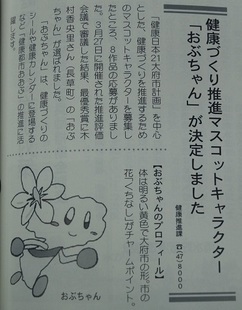 健康づくり推進マスコットキャラクター
「おぶちゃん」が決定しました
健康推進課 ☎(47)8000
「健康日本21大府市計画」を中心
とした、健康づくりを推進するため
のマスコットキャラクターを募集し
たところ、8作品の応募がありまし
た。3月27日に開催された推進評価
会議で審議した結果、最優秀賞に木
村香央里さん(長草町)の「おぶ
ちゃん」が選ばれました。
「おぶちゃん」は、健康づくりの
シールや健康カレンダーに登場する
など「健康都市おおぶ」の推進に活
躍します。
【おぶちゃんのプロフィール】
体は明るい黄色で大府市の形。市の
花「くちなし」がチャームポイント。
おぶちゃん